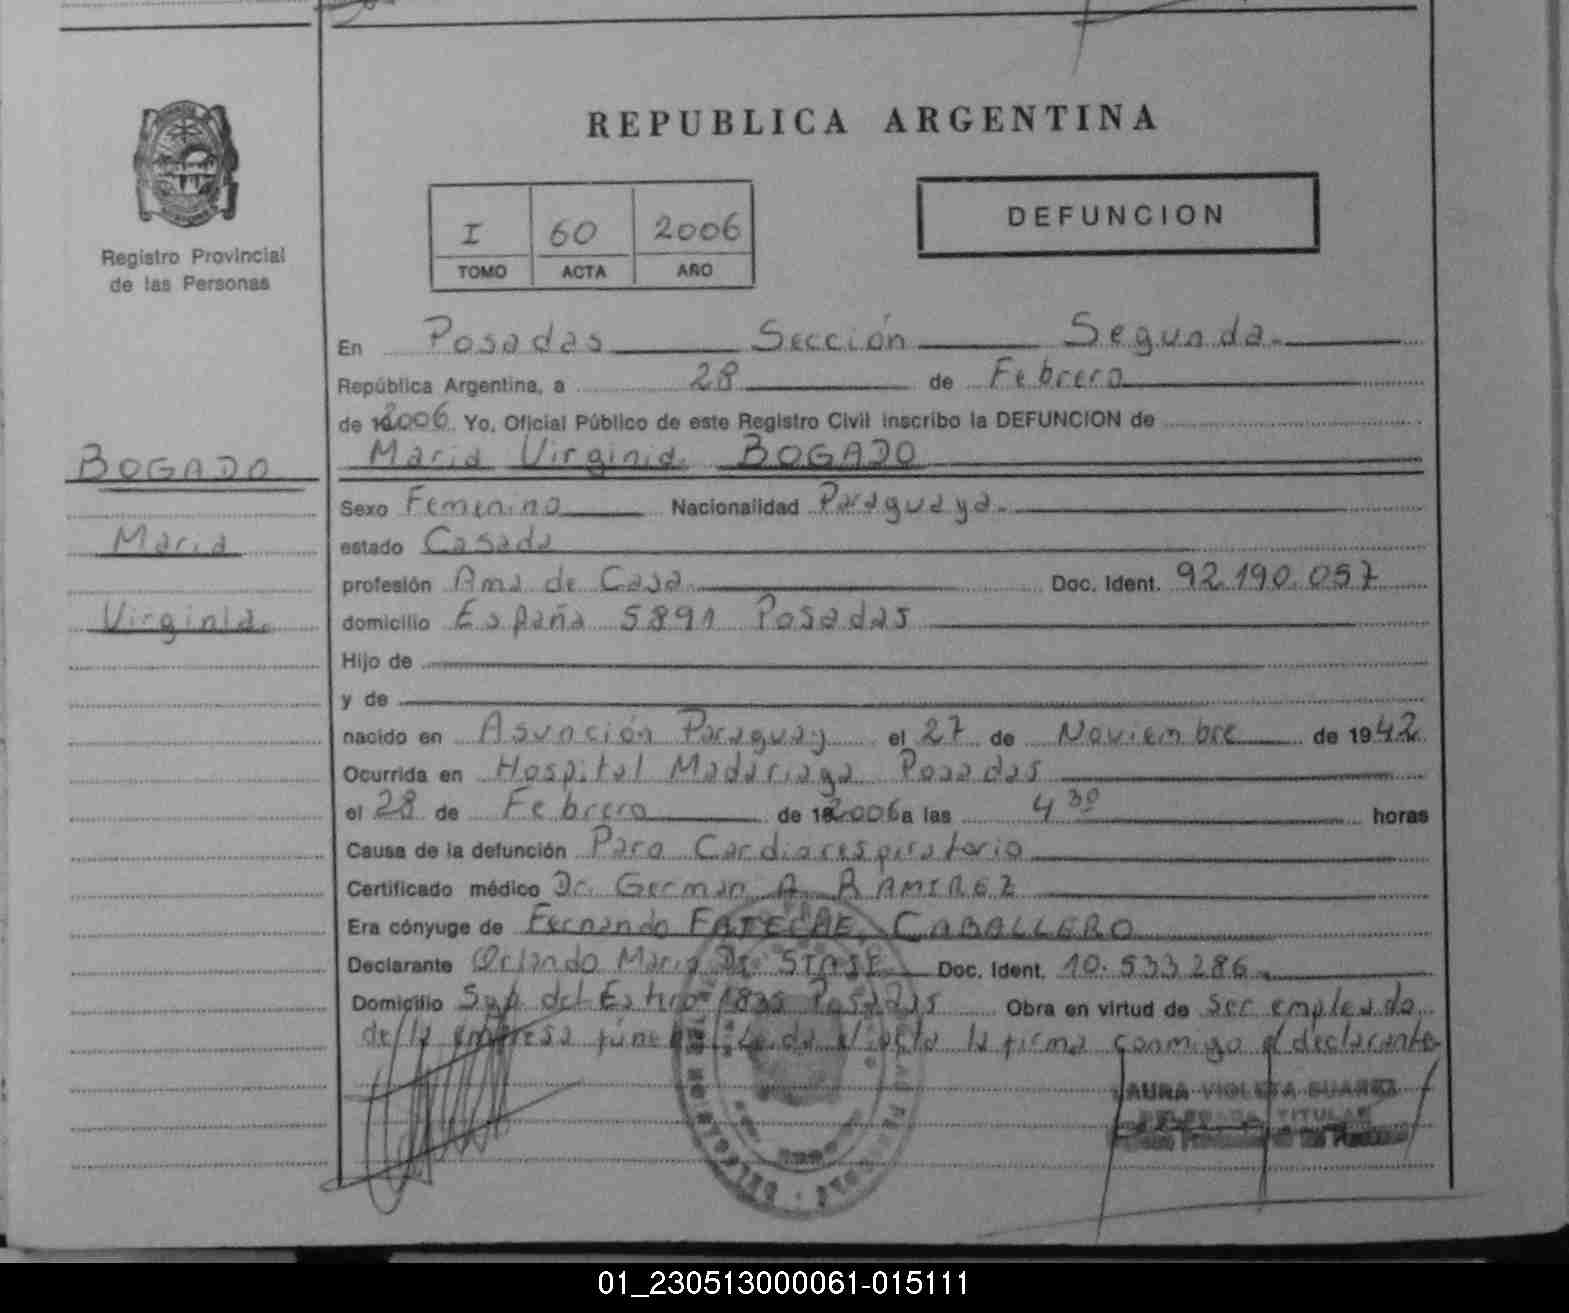 REPUBLICA ARGENTINA
Registro Provincial
de las Personas
I 60 2006
TOMO ACTA AÑO
DEFUNCION
En Posadas Sección Segunda
República Argentina, a 28 de Febrero
de 2006. Yo, Oficial Público de este Registro Civil inscribo la DEFUNCION de
BOGADO
Maria Virginia BOGADO
Sexo Femenino Nacionalidad Paraguaya
Maria
estado Casada
profesión Ama de Casa Doc. Ident. 92.190.057
Virginia
domicilio España 5891 Posadas
Hijo de
y de
nacido en Asunción Paraguay el 27 de Noviembre de 1942
Ocurrida en Hospital Madariaga Posadas
el 28 de Febrero de 2006 a las 4 30 horas
Causa de la defunción Paro Cardiorespiratorio
Certificado médico Dr. German A. RAMIREZ
Era cónyuge de Fernando CABALLERO
Declarante Orlando Mario Doc. Ident. 10.533.286
Domicilio del Estero 1835 Posadas Obra en virtud de ser empleado
de la empresa Leida el acta la firma conmigo el declarante
LAURA VIOLETA SUAREZ
DELEGADA TITULAR
01_230513000061-015111